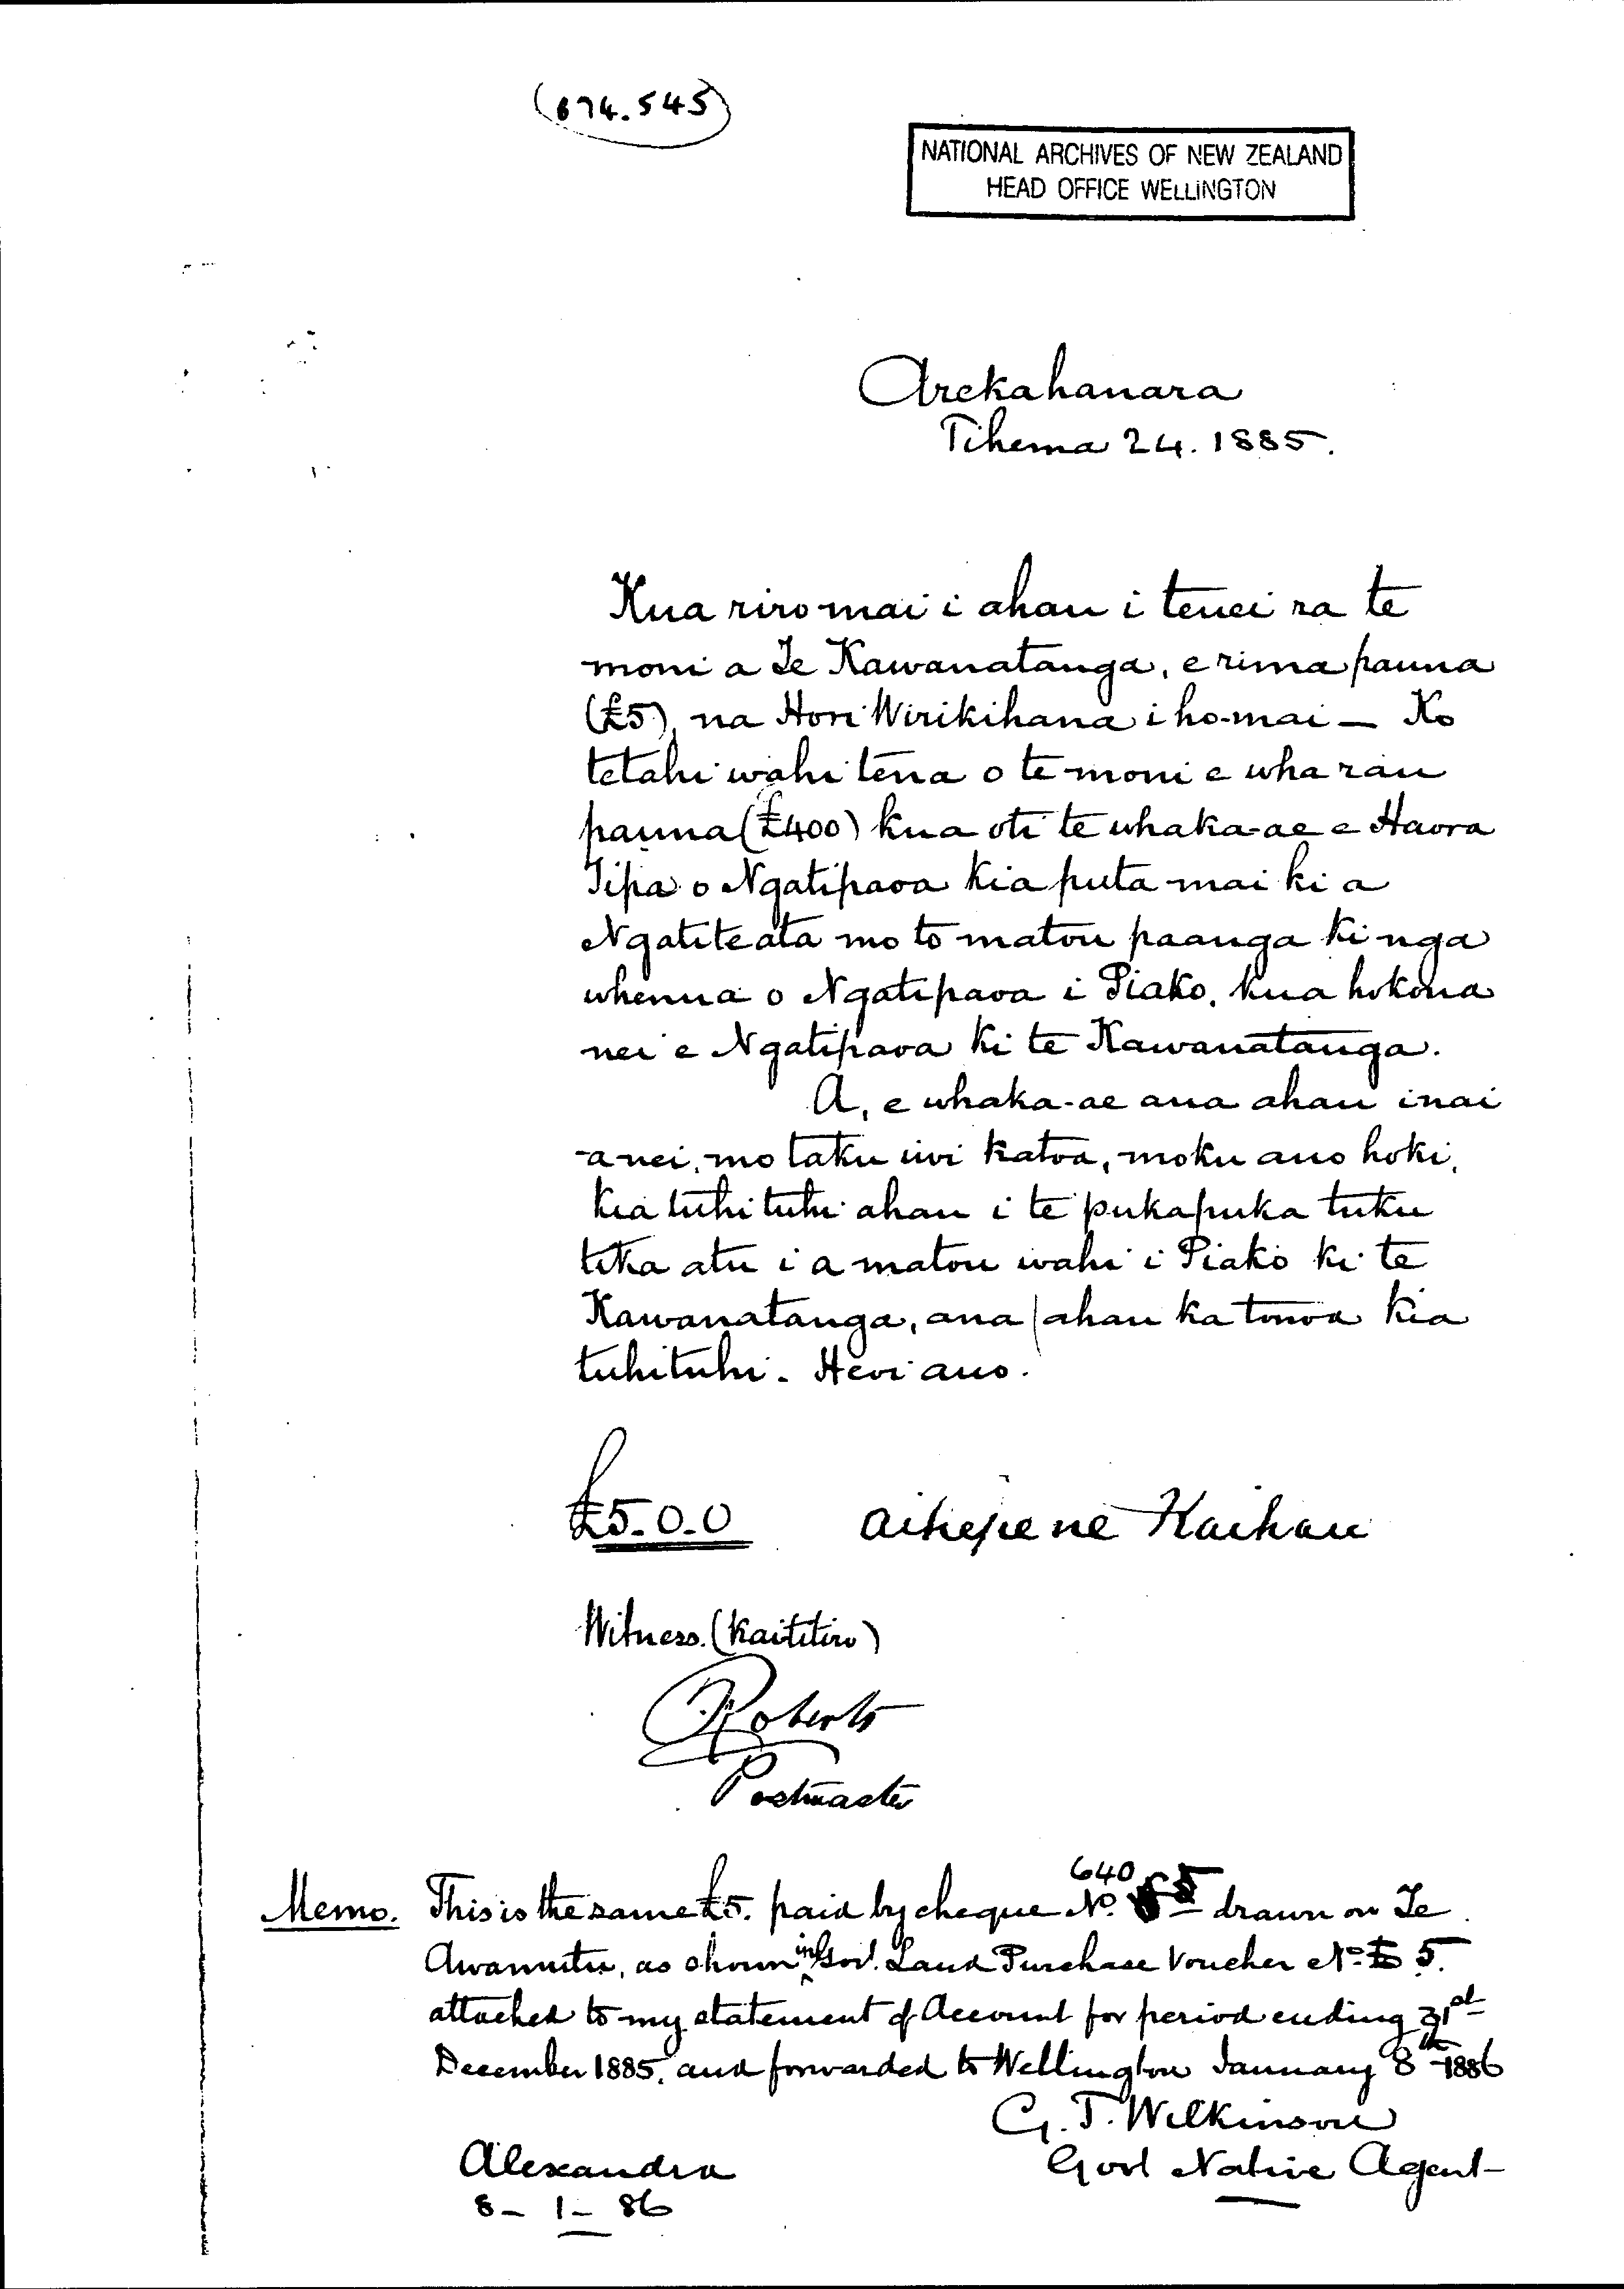 (674.545)
NATIONAL ARCHIVES OF NEW ZEALAND
HEAD OFFICE WELLINGTON
Arekahanara
Tihema 24. 1885.
Kua riro mai i ahau i tenei ra te
moni a Te Kawanatanga, e rima pauna
(£5), na Hori Wirikihana i ho-mai — Ko
tetahi wahi tena o te moni e wha rau
pauna (£400) kua oti te whaka-ae e Haora
Tipa o Ngatipaoa kia puta mai ki a
Ngatiteata mo to matou paanga ki nga
whenua o Ngatipaoa i Piako, kua hokona
nei e Ngatipaoa ki te Kawanatanga.
A, e whaka-ae ana ahau inai
anei, mo taku iwi katoa, moku ano hoki,
kia tuhituhi ahau i te pukapuka tuku
tika atu i a matou wahi i Piako ki te
Kawanatanga, ana ahau ka tonoa kia
tuhituhi. Heoi ano.
£5.0.0 Aihepene Kaihau
Witness. (Kaititiro)
Roberts
Postmaster
640
Memo. This is the same £5. paid by cheque No. 5 drawn on Te
Awamutu, as shown in Gov't. Land Purchase Voucher No. 5.
attached to my statement of Account for period ending 31st
December 1885, and forwarded to Wellington January 8th 1886
G. T. Wilkinson
Alexandra Govt Native Agent
8 - 1 - 86